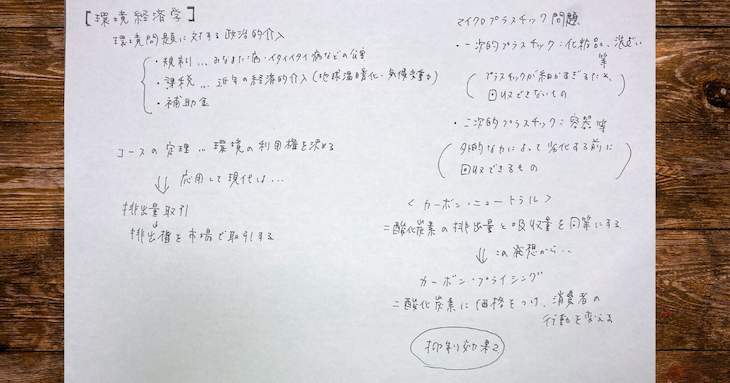 [環境経済学]
環境問題に対する政治的介入
・規制 … みなまた病・イタイイタイ病などの公害
・課税 … 近年の経済的介入(地球温暖化・気候変動)
・補助金
コースの定理 … 環境の利用権を決める
⇓ 応用して現代は…
排出量取引
↓
排出権を市場で取引する
マイクロプラスチック問題
・一次的プラスチック:化粧品、洗ざい
等
(プラスチックが細かすぎるため、
回収できないもの)
・二次的プラスチック:容器等
(外的な力によって劣化する前に
回収できるもの)
<カーボン・ニュートラル>
二酸化炭素の排出量と吸収量を同等にする
⇓ この発想から…
カーボン・プライシング
二酸化炭素に価格をつけ、消費者の
行動を変える
抑制効果